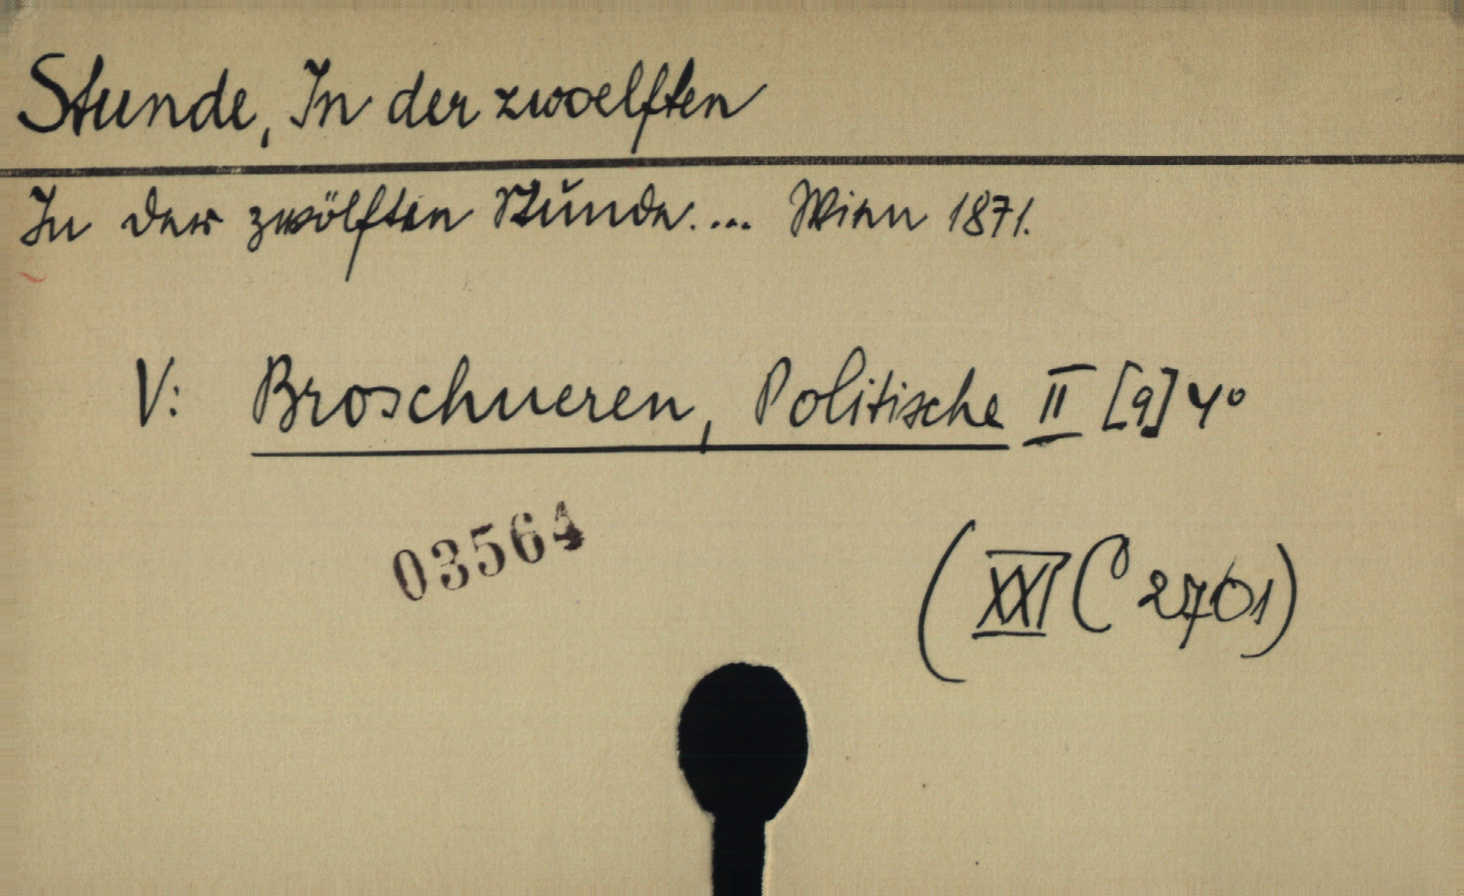 Stunde, In der zwoelften
In der zwölften Stunde.... Wien 1871.
V: Broschueren, Politische II [9] 4°
03564
(XXI C 2701)